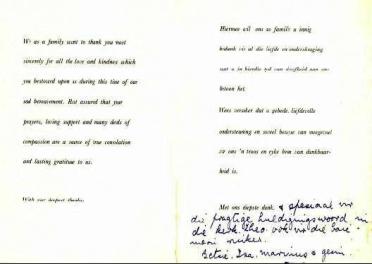 We as a family want to thank you most
sincerely for all the love and kindness which
you bestowed upon us during this time of our
sad bereavement. Rest assured that your
prayers, loving support and many deeds of
compassion are a source of true consolation
and lasting gratitude to us.
With our deepest thanks.
Hiermee wil ons as familie u innig
bedank vir al die liefde en onderskraging
wat u in hierdie tyd van droefheid aan ons
betoon het.
Wees verseker dat u gebede, liefdevolle
ondersteuning en soveel bewyse van meegevoel
vir ons 'n troos en ryke bron van dankbaar-
heid is.
Met ons diepste dank. & spesiaal vir
die pragtige huldigingswoord in
die kerk. Theo. ook vir die
mooi ruiker.
Marinus & gesin.